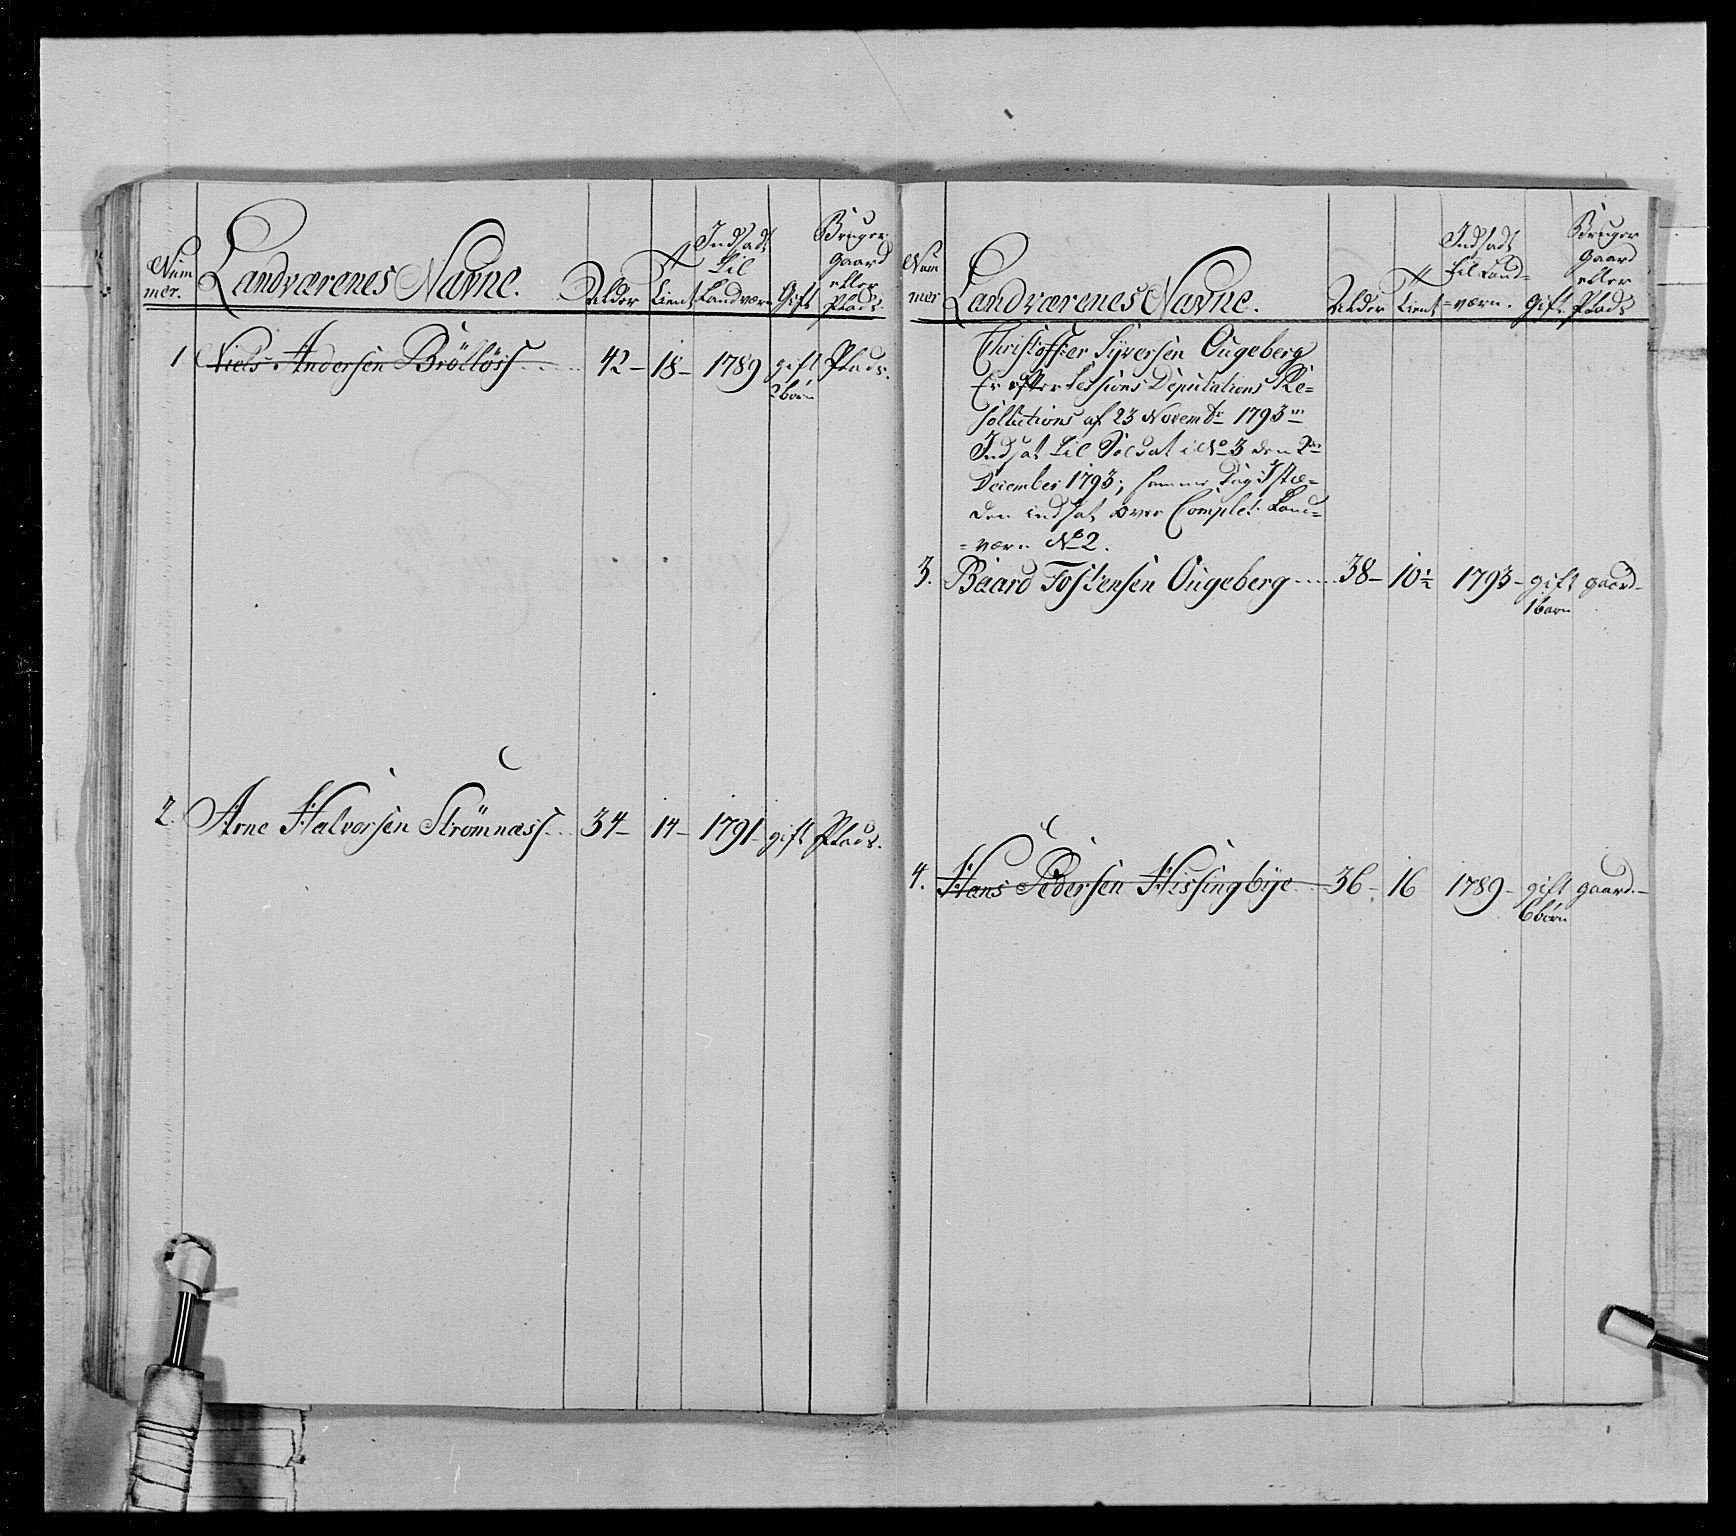 Num
mer.
Landværenes Navne.
Alder
Tient
Indsadt
til
Landværn
Gift
Bruger
Gaard
eller
Plads
1 Niels Andersen Brölløss 42 - 18 - 1789 gift Plads.
2 børn
2. Arne Halvorsen Strömnæss 34 - 14 - 1791 - gift Plads.
Num
mer
Landværenes Navne.
Alder
Tient
Indsadt
til Land=
=værn.
Gift
Bruger
Gaard
eller
Plads
Christoffer Syversen Ougeberg
Er efter Sessions Deputations Re=
sollutions af 23 Novembr 1793
Indsat til Soldat i No 3 den 2den
December 1793; samme Dag i Stæ=
den indsat over Complet Land=
=værn No 2.
3. Baard Tostensen Ougeberg 38 - 10½ 1793 - gift gaard -
1 barn
4. Hans Pedersen Hissingbye 36 - 16 1789 - gift gaard. -
6 børn